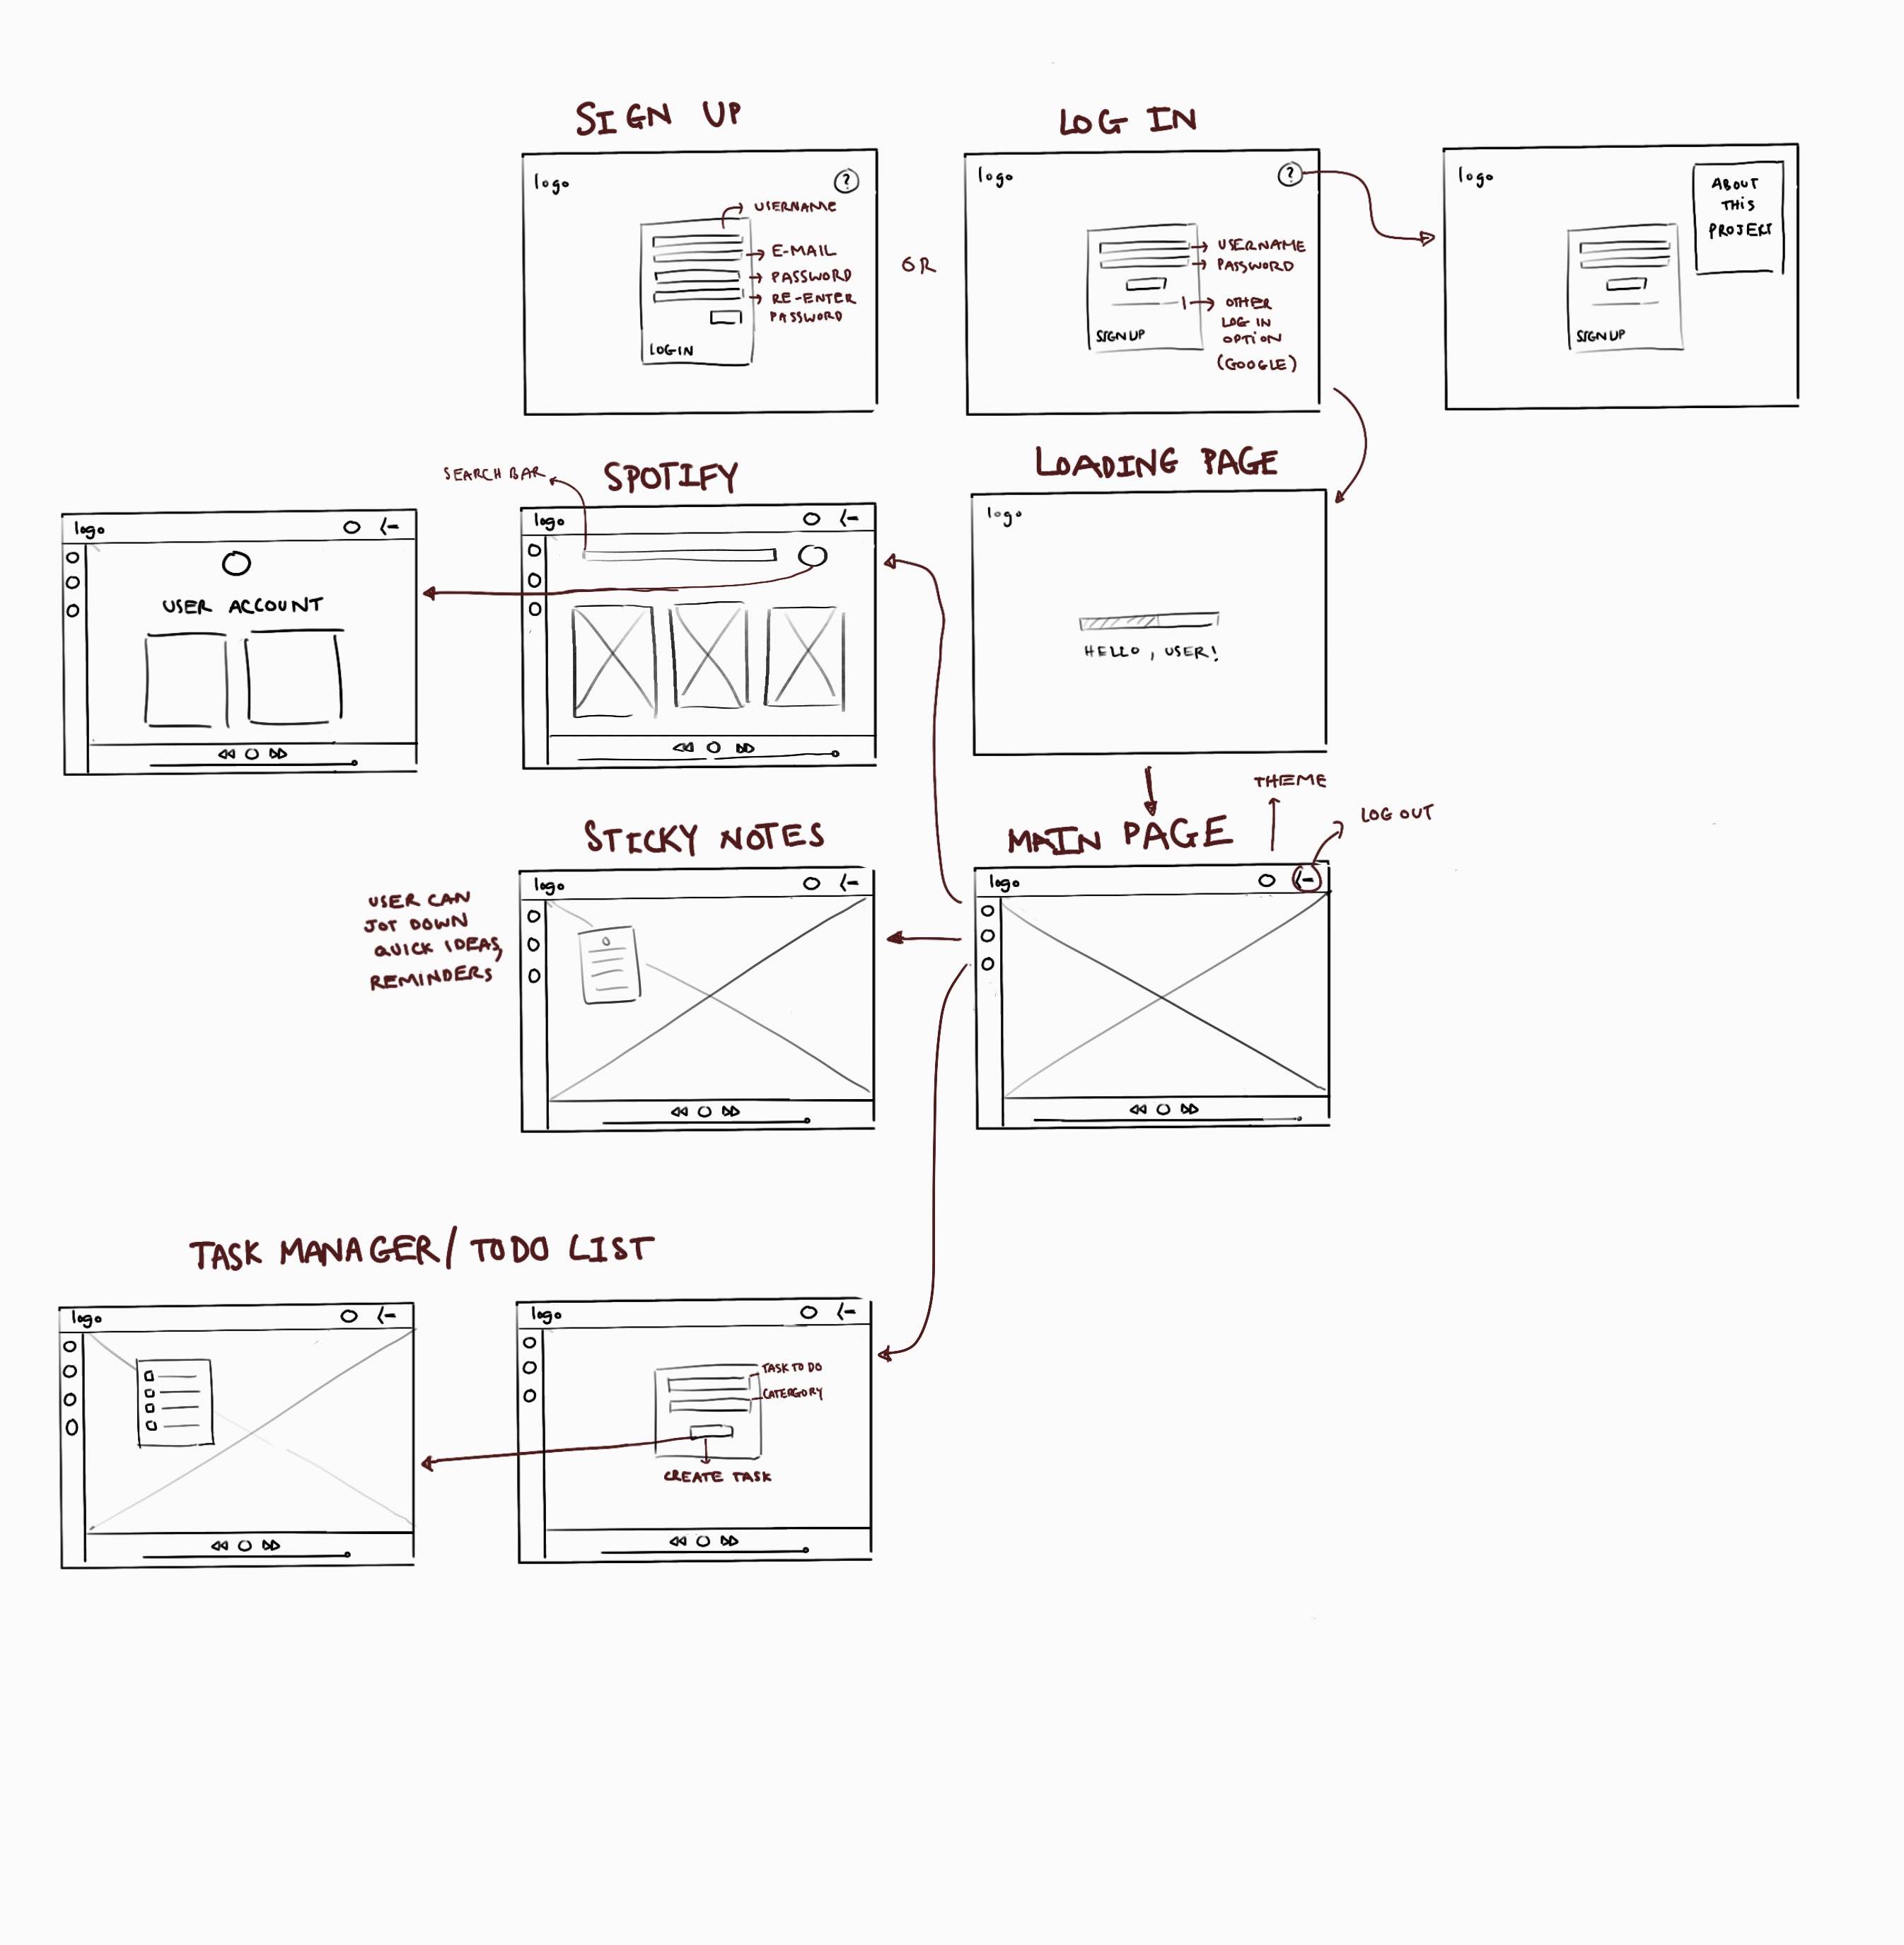 SIGN UP
LOG IN
logo
?
USERNAME
E-MAIL
PASSWORD
RE-ENTER
PASSWORD
LOGIN
OR
logo
?
USERNAME
PASSWORD
OTHER
LOG IN
OPTION
(GOOGLE)
SIGNUP
logo
ABOUT
THIS
PROJECT
SIGNUP
SEARCH BAR
SPOTIFY
LOADING PAGE
logo
USER ACCOUNT
logo
logo
HELLO, USER!
STICKY NOTES
MAIN PAGE
THEME
LOG OUT
USER CAN
JOT DOWN
QUICK IDEAS,
REMINDERS
logo
logo
TASK MANAGER/TODO LIST
logo
logo
TASK TO DO
CATERGORY
CREATE TASK